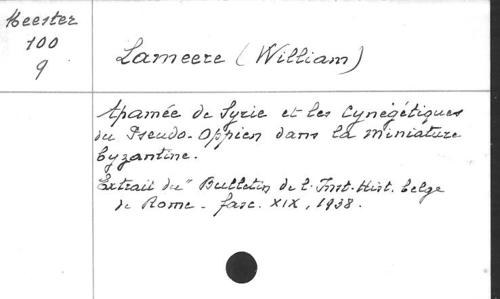 Meester
100
9
Lameere (William)
Apamée de Syrie et les Cynégétiques
du Pseudo-Oppien dans la miniature
byzantine.
Extrait du "Bulletin de l'Inst. Hist. belge
de Rome - fasc. XIX, 1938.